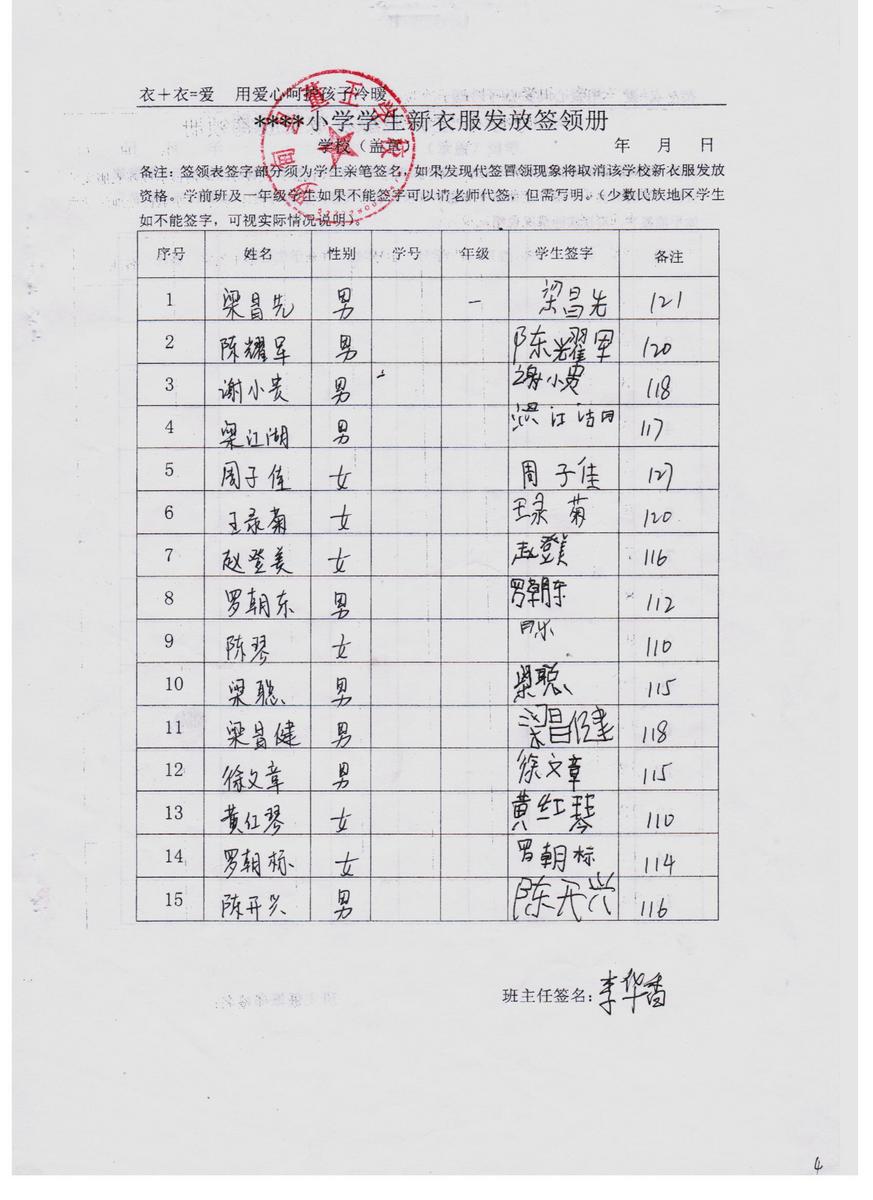 衣+衣=爱 用爱心呵护孩子冷暖
****小学学生新衣服发放签领册
学校（盖章） 年 月 日
备注：签领表签字部分须为学生亲笔签名，如果发现代签冒领现象将取消该学校新衣服发放
资格。学前班及一年级学生如果不能签字可以请老师代签，但需写明。（少数民族地区学生
如不能签字，可视实际情况说明）。
序号 姓名 性别 学号 年级 学生签字 备注
1 梁昌先 男 一 梁昌先 121
2 陈耀军 男 陈耀军 120
3 谢小贵 男 谢小贵 118
4 梁江湖 男 梁江湖 117
5 周子佳 女 周子佳 127
6 王录菊 女 王录菊 120
7 赵登美 女 赵登美 116
8 罗朝东 男 罗朝东 112
9 陈琴 女 110
10 梁聪 男 梁聪 115
11 梁昌健 男 梁昌健 118
12 徐文章 男 徐文章 115
13 黄红琴 女 黄红琴 110
14 罗朝标 女 罗朝标 114
15 陈开兴 男 陈开兴 116
班主任签名：李华香
4